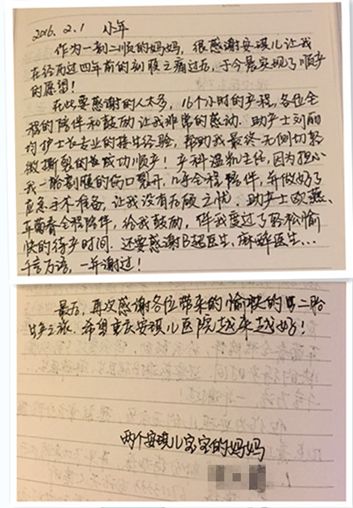 2016.2.1 小年
作为一剖二顺的妈妈，很感谢安琪儿让我
在经历过四年前的剖腹之痛过后，于今晨实现了顺产
的愿望！
在此要感谢的人太多，16个小时的产程，各位全
程的陪伴和鼓励让我非常的感动。助产士刘丽
均护士长专业的接生经验，帮助我最终无侧切轻
微撕裂的生成功顺产！产科温主任，因为担心
我一胎剖腹的伤口裂开，几乎全程陪伴，并做好了
应急手术准备，让我没有后顾之忧。助产士欧燕、
全程陪伴，给我鼓励，伴我度过了轻松愉
快的待产时间。还要感谢B超医生，麻醉医生…
千言万语，一并谢过！
最后，再次感谢各位带来的愉快的二胎
生产之旅。希望重庆安琪儿医院越来越好！
两个安琪儿宝宝的妈妈